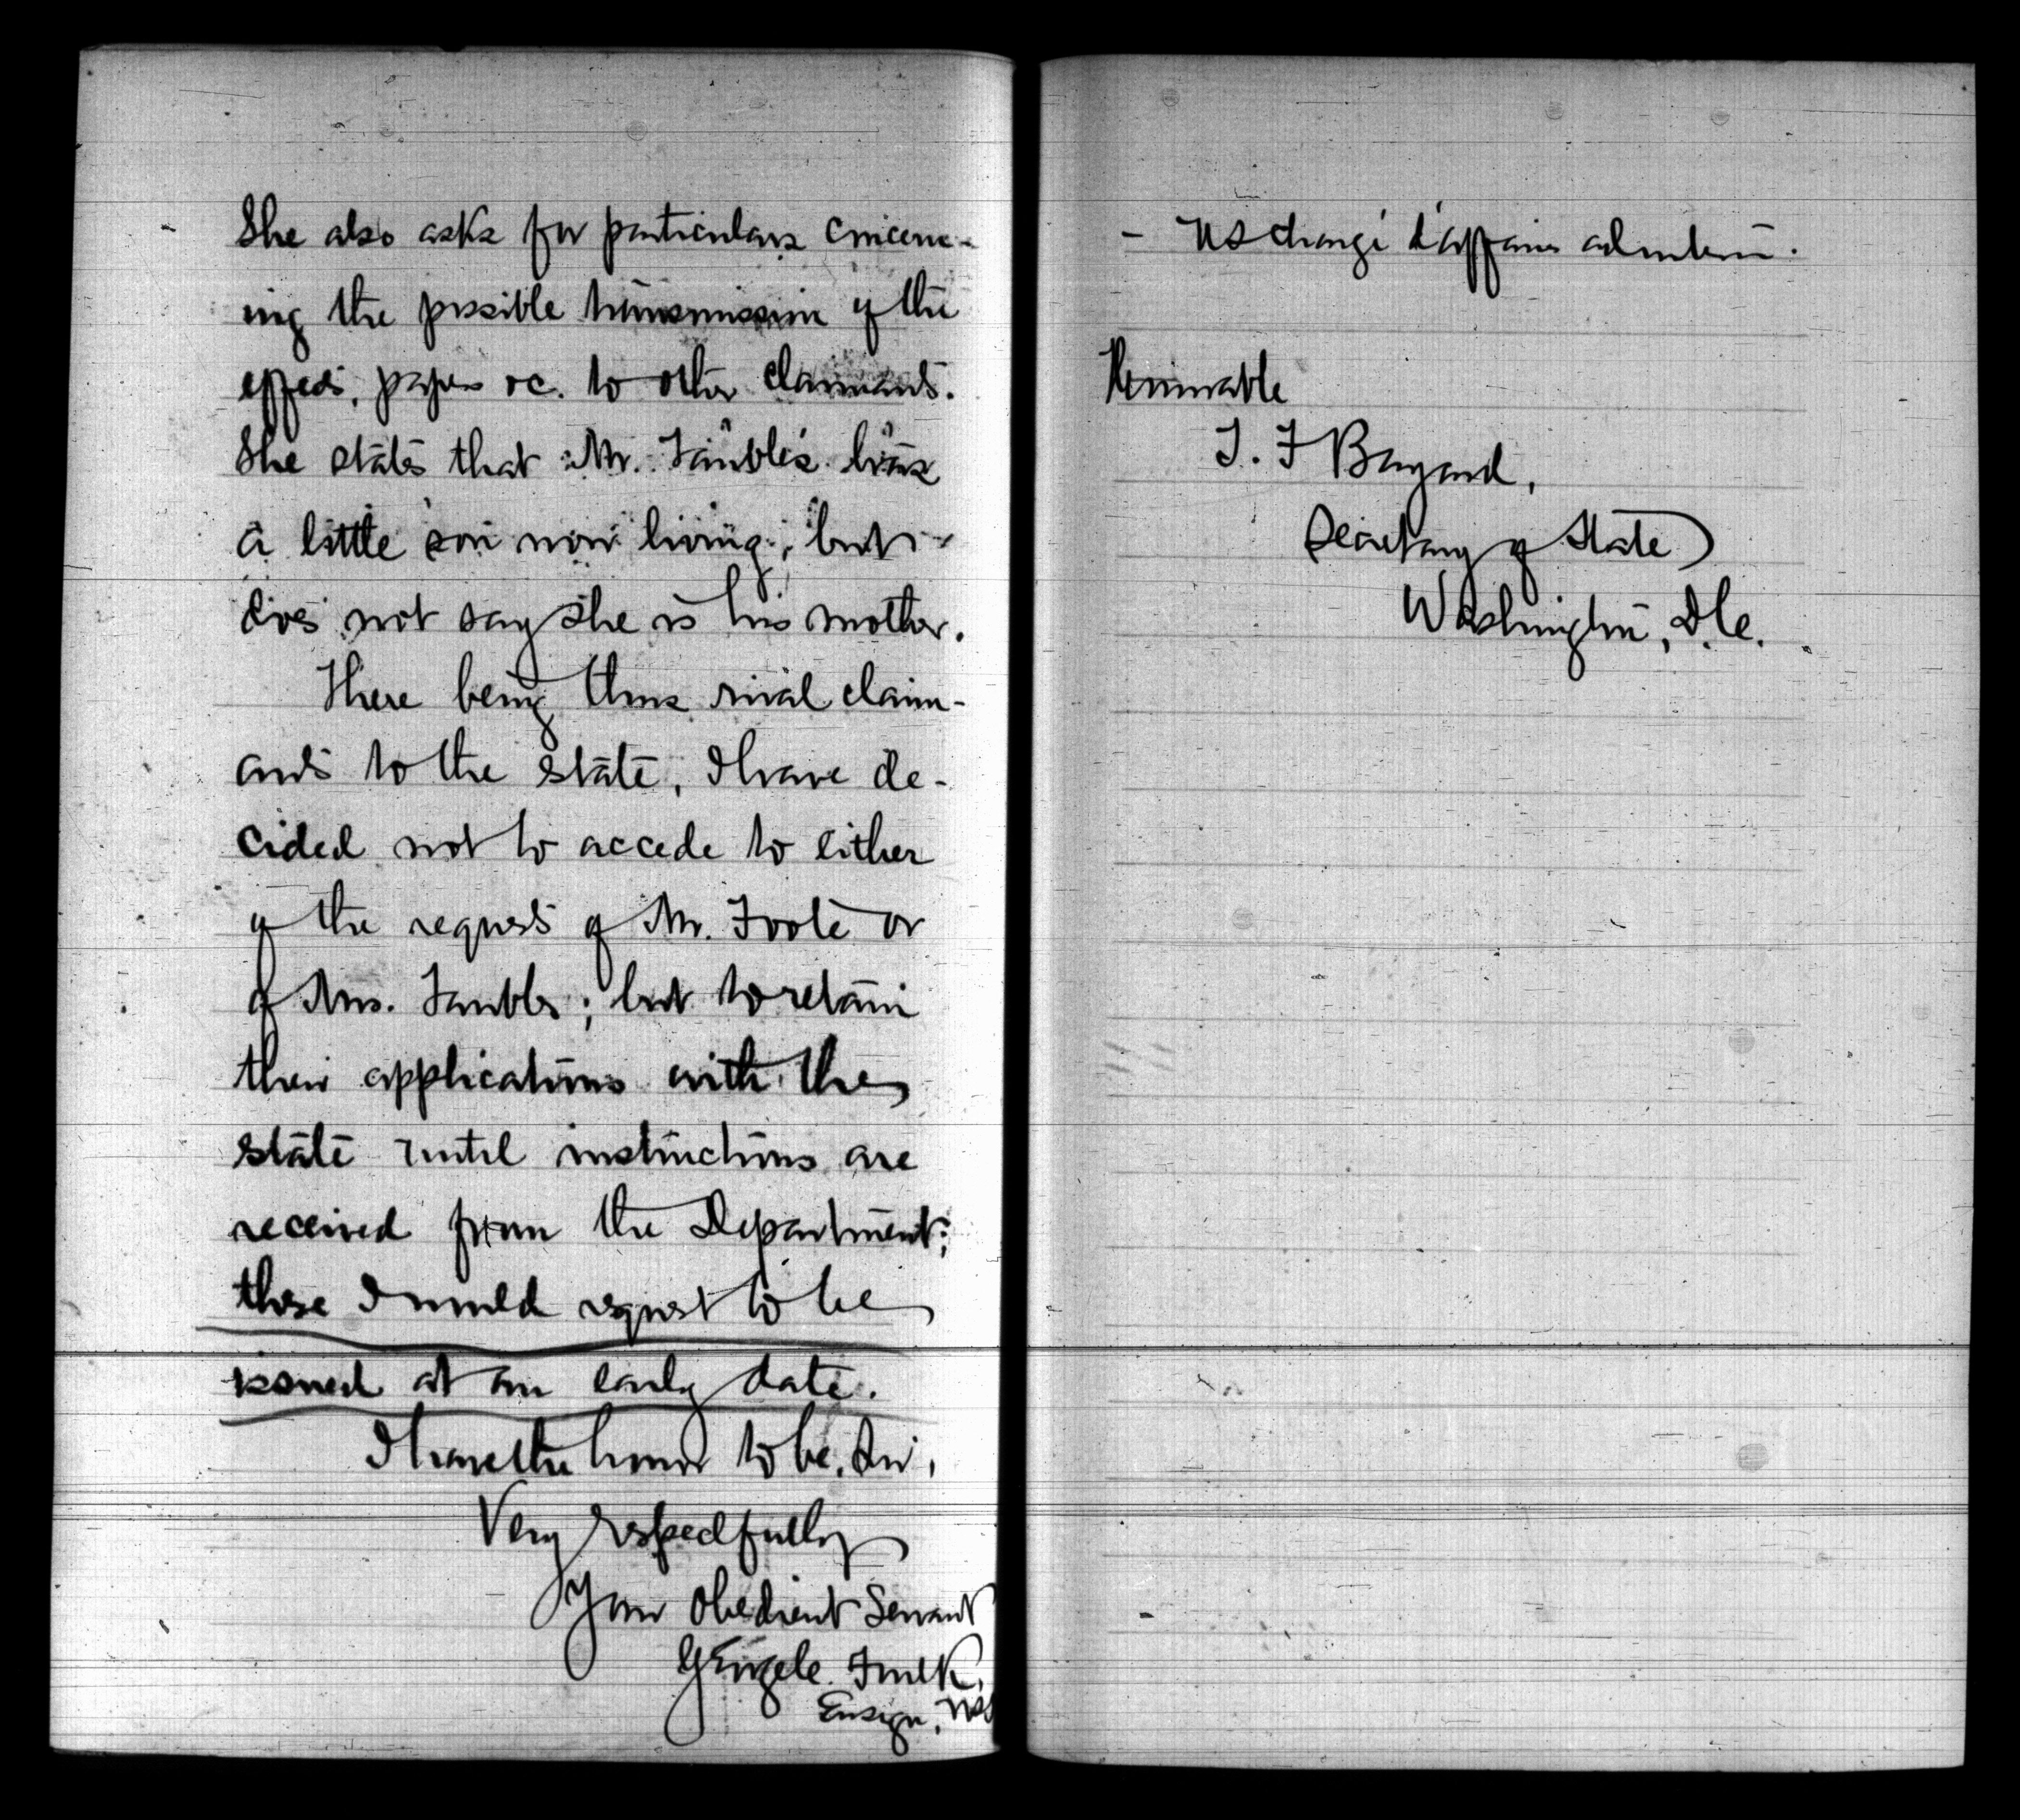 She also asks for particulars concern-
ing the possible transmission of the
effects, papers &c. to other claimants.
She states that Mr. Taubles has
a little son now living; but
does not say she is his mother.
There being thus rival claim-
ants to the state, I have de-
cided not to accede to either
of the requests of Mr. Foote or
of Mrs. Taubles; but to retain
their applications with the
state until instructions are
received from the Department;
these I would request to be
issued at an early date.
I have the honor to be, Sir,
Very respectfully
Your Obedient Servant
George C. Foulk,
Ensign, U.S.
- US chargé d'affaires ad interim.
Honorable
T. F Bayard,
Secretary of State
Washington, D.C.